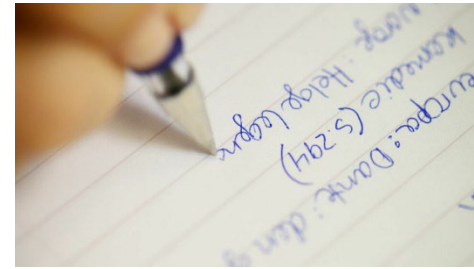 europa: Dante: den g
komedie (s.294)
Helge